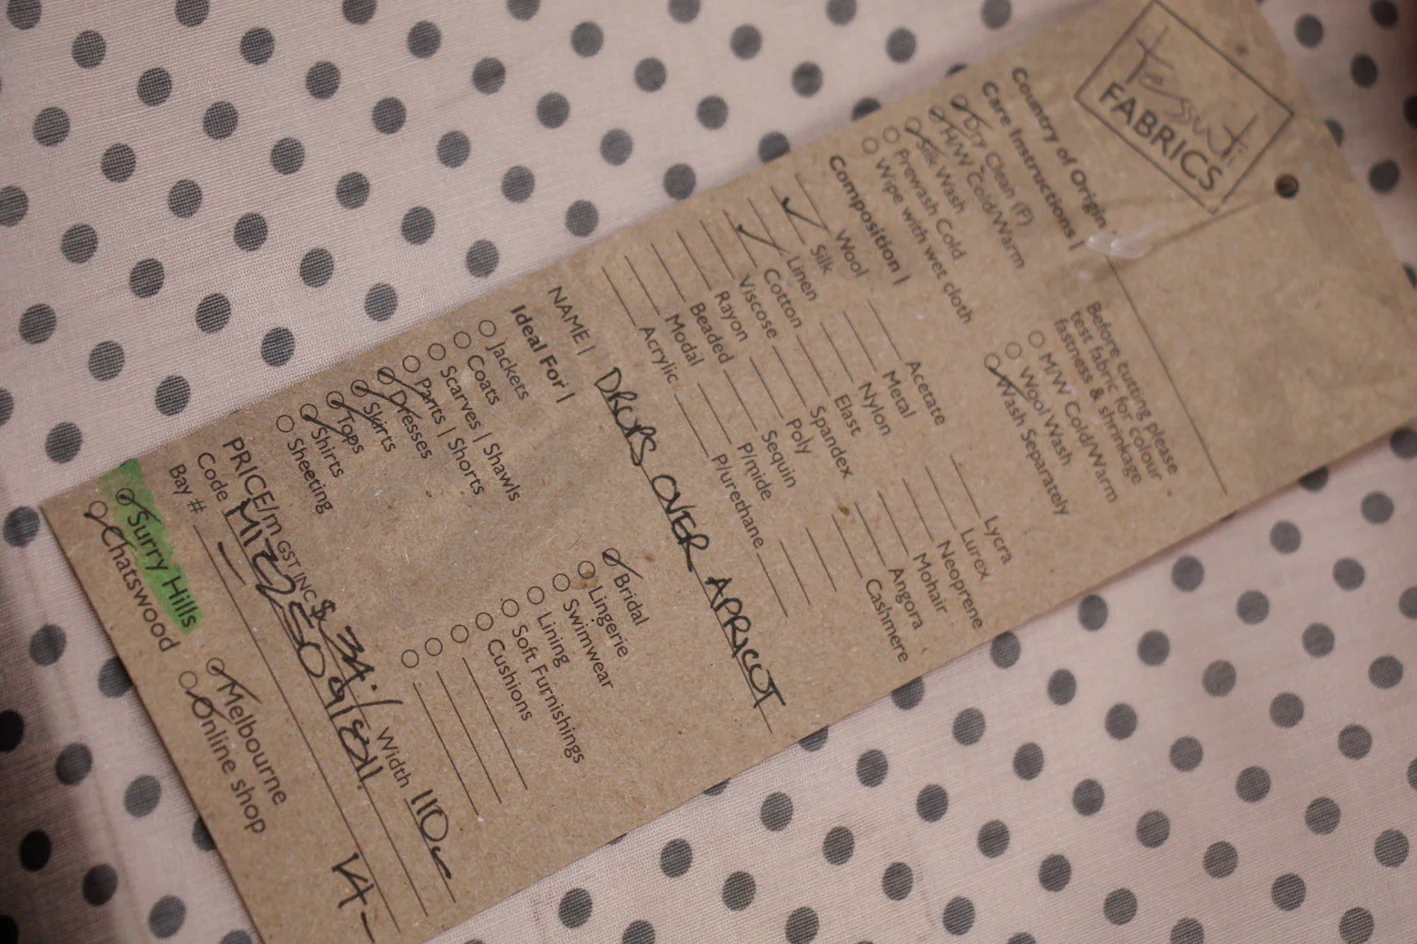 tessuti
FABRICS
Country of Origin
Care Instructions |
Dry Clean (P)
H/W Cold/Warm
Silk Wash
Prewash Cold
Wipe with wet cloth
Before cutting please
test fabric for colour
fastness & shrinkage
M/W Cold/Warm
Wool Wash
Wash Separately
Composition |
Wool
Silk
Linen
Cotton
Viscose
Rayon
Beaded
Modal
Acrylic
Acetate
Metal
Nylon
Elast
Spandex
Poly
Sequin
P/mide
P/urethane
Lycra
Lurex
Neoprene
Mohair
Angora
Cashmere
NAME | DROPS OVER APRICOT
Ideal For |
Jackets
Coats
Scarves | Shawls
Pants | Shorts
Dresses
Skirts
Tops
Shirts
Sheeting
Bridal
Lingerie
Swimwear
Lining
Soft Furnishings
Cushions
PRICE/m GST INC $ 34.- Width 110
Code
Bay #
Surry Hills
Chatswood
Melbourne
Online shop